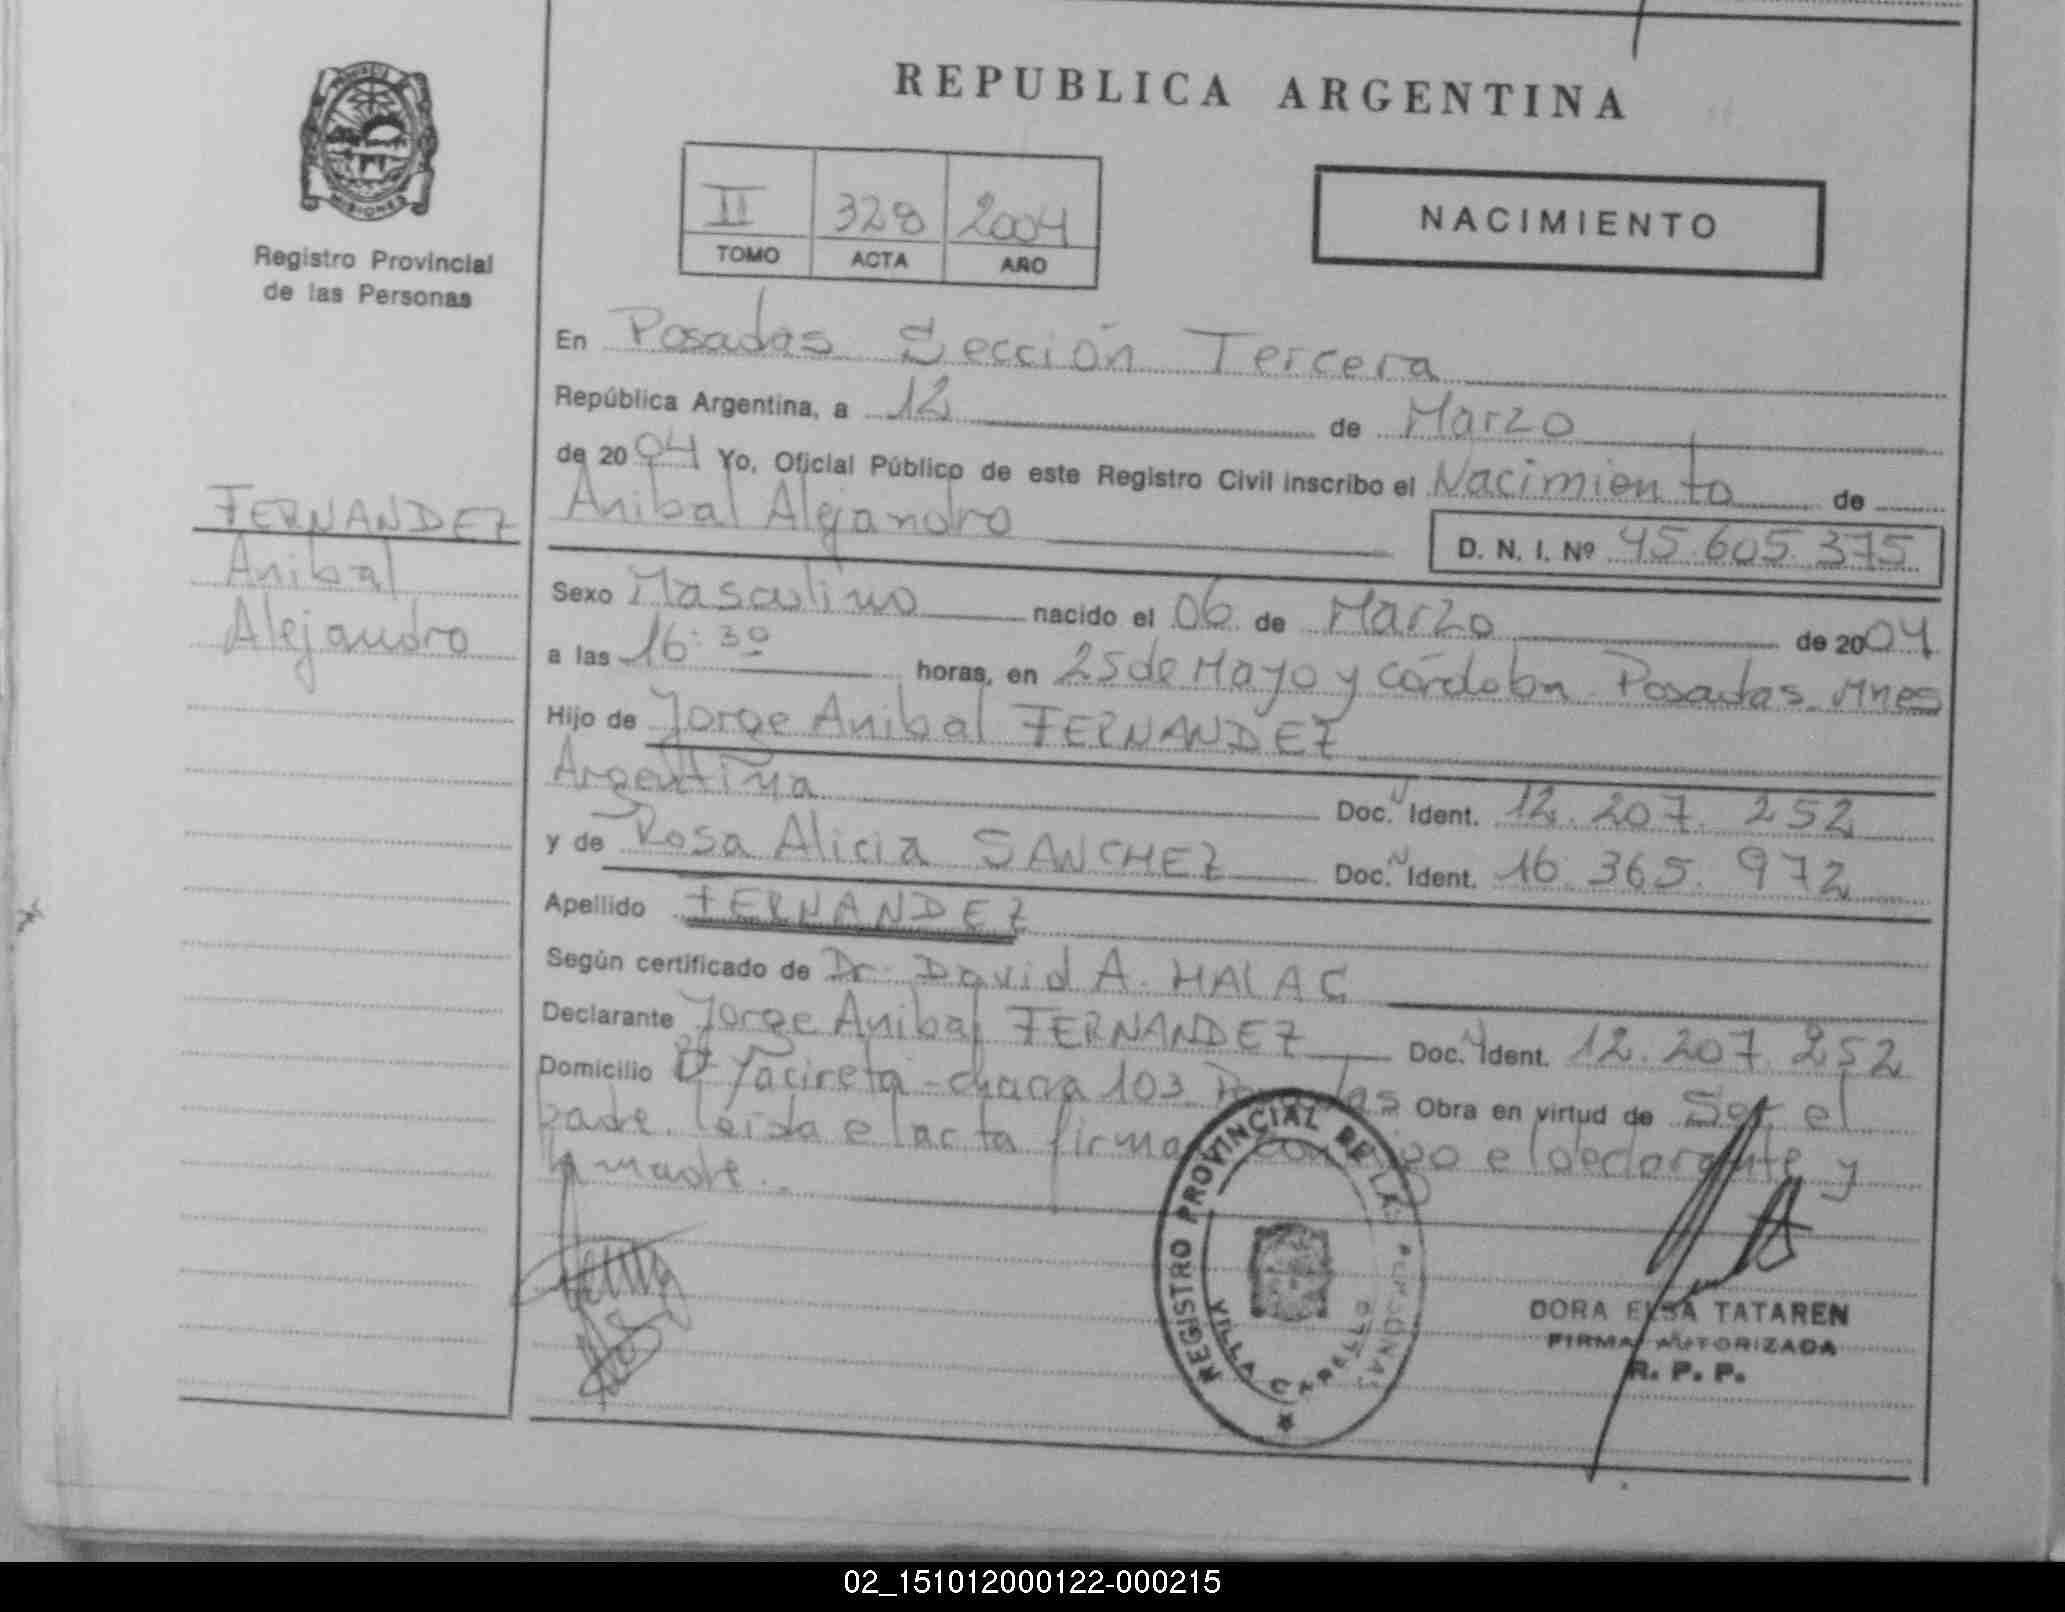 REPUBLICA ARGENTINA
MISIONES
Registro Provincial
de las Personas
II 328 2004
TOMO ACTA AÑO
NACIMIENTO
FERNANDEZ
Anibal
Alejandro
En Posadas Sección Tercera
República Argentina, a 12 de Marzo
de 2004 Yo, Oficial Público de este Registro Civil inscribo el Nacimiento de
Anibal Alejandro D. N. I. Nº 45.605.375
Sexo Masculino nacido el 06 de Marzo de 2004
a las 16:30 horas, en 25 de Mayo y Córdoba Posadas Mnes
Hijo de Jorge Anibal FERNANDEZ
Argentina Doc. Ident. 12.207.252
y de Rosa Alicia SANCHEZ Doc. Ident. 16.365.972
Apellido FERNANDEZ
Según certificado de Dr. David A. MALAC
Declarante Jorge Anibal FERNANDEZ Doc. Ident. 12.207.252
Domicilio Yacireta - chacra 103 Posadas Obra en virtud de Ser el
padre. leida el acta firma conmigo el declarante y
la madre.
REGISTRO PROVINCIAL DE LAS PERSONAS
VILLA CABELLO
DORA ELSA TATAREN
FIRMA AUTORIZADA
R. P. P.
02_151012000122-000215